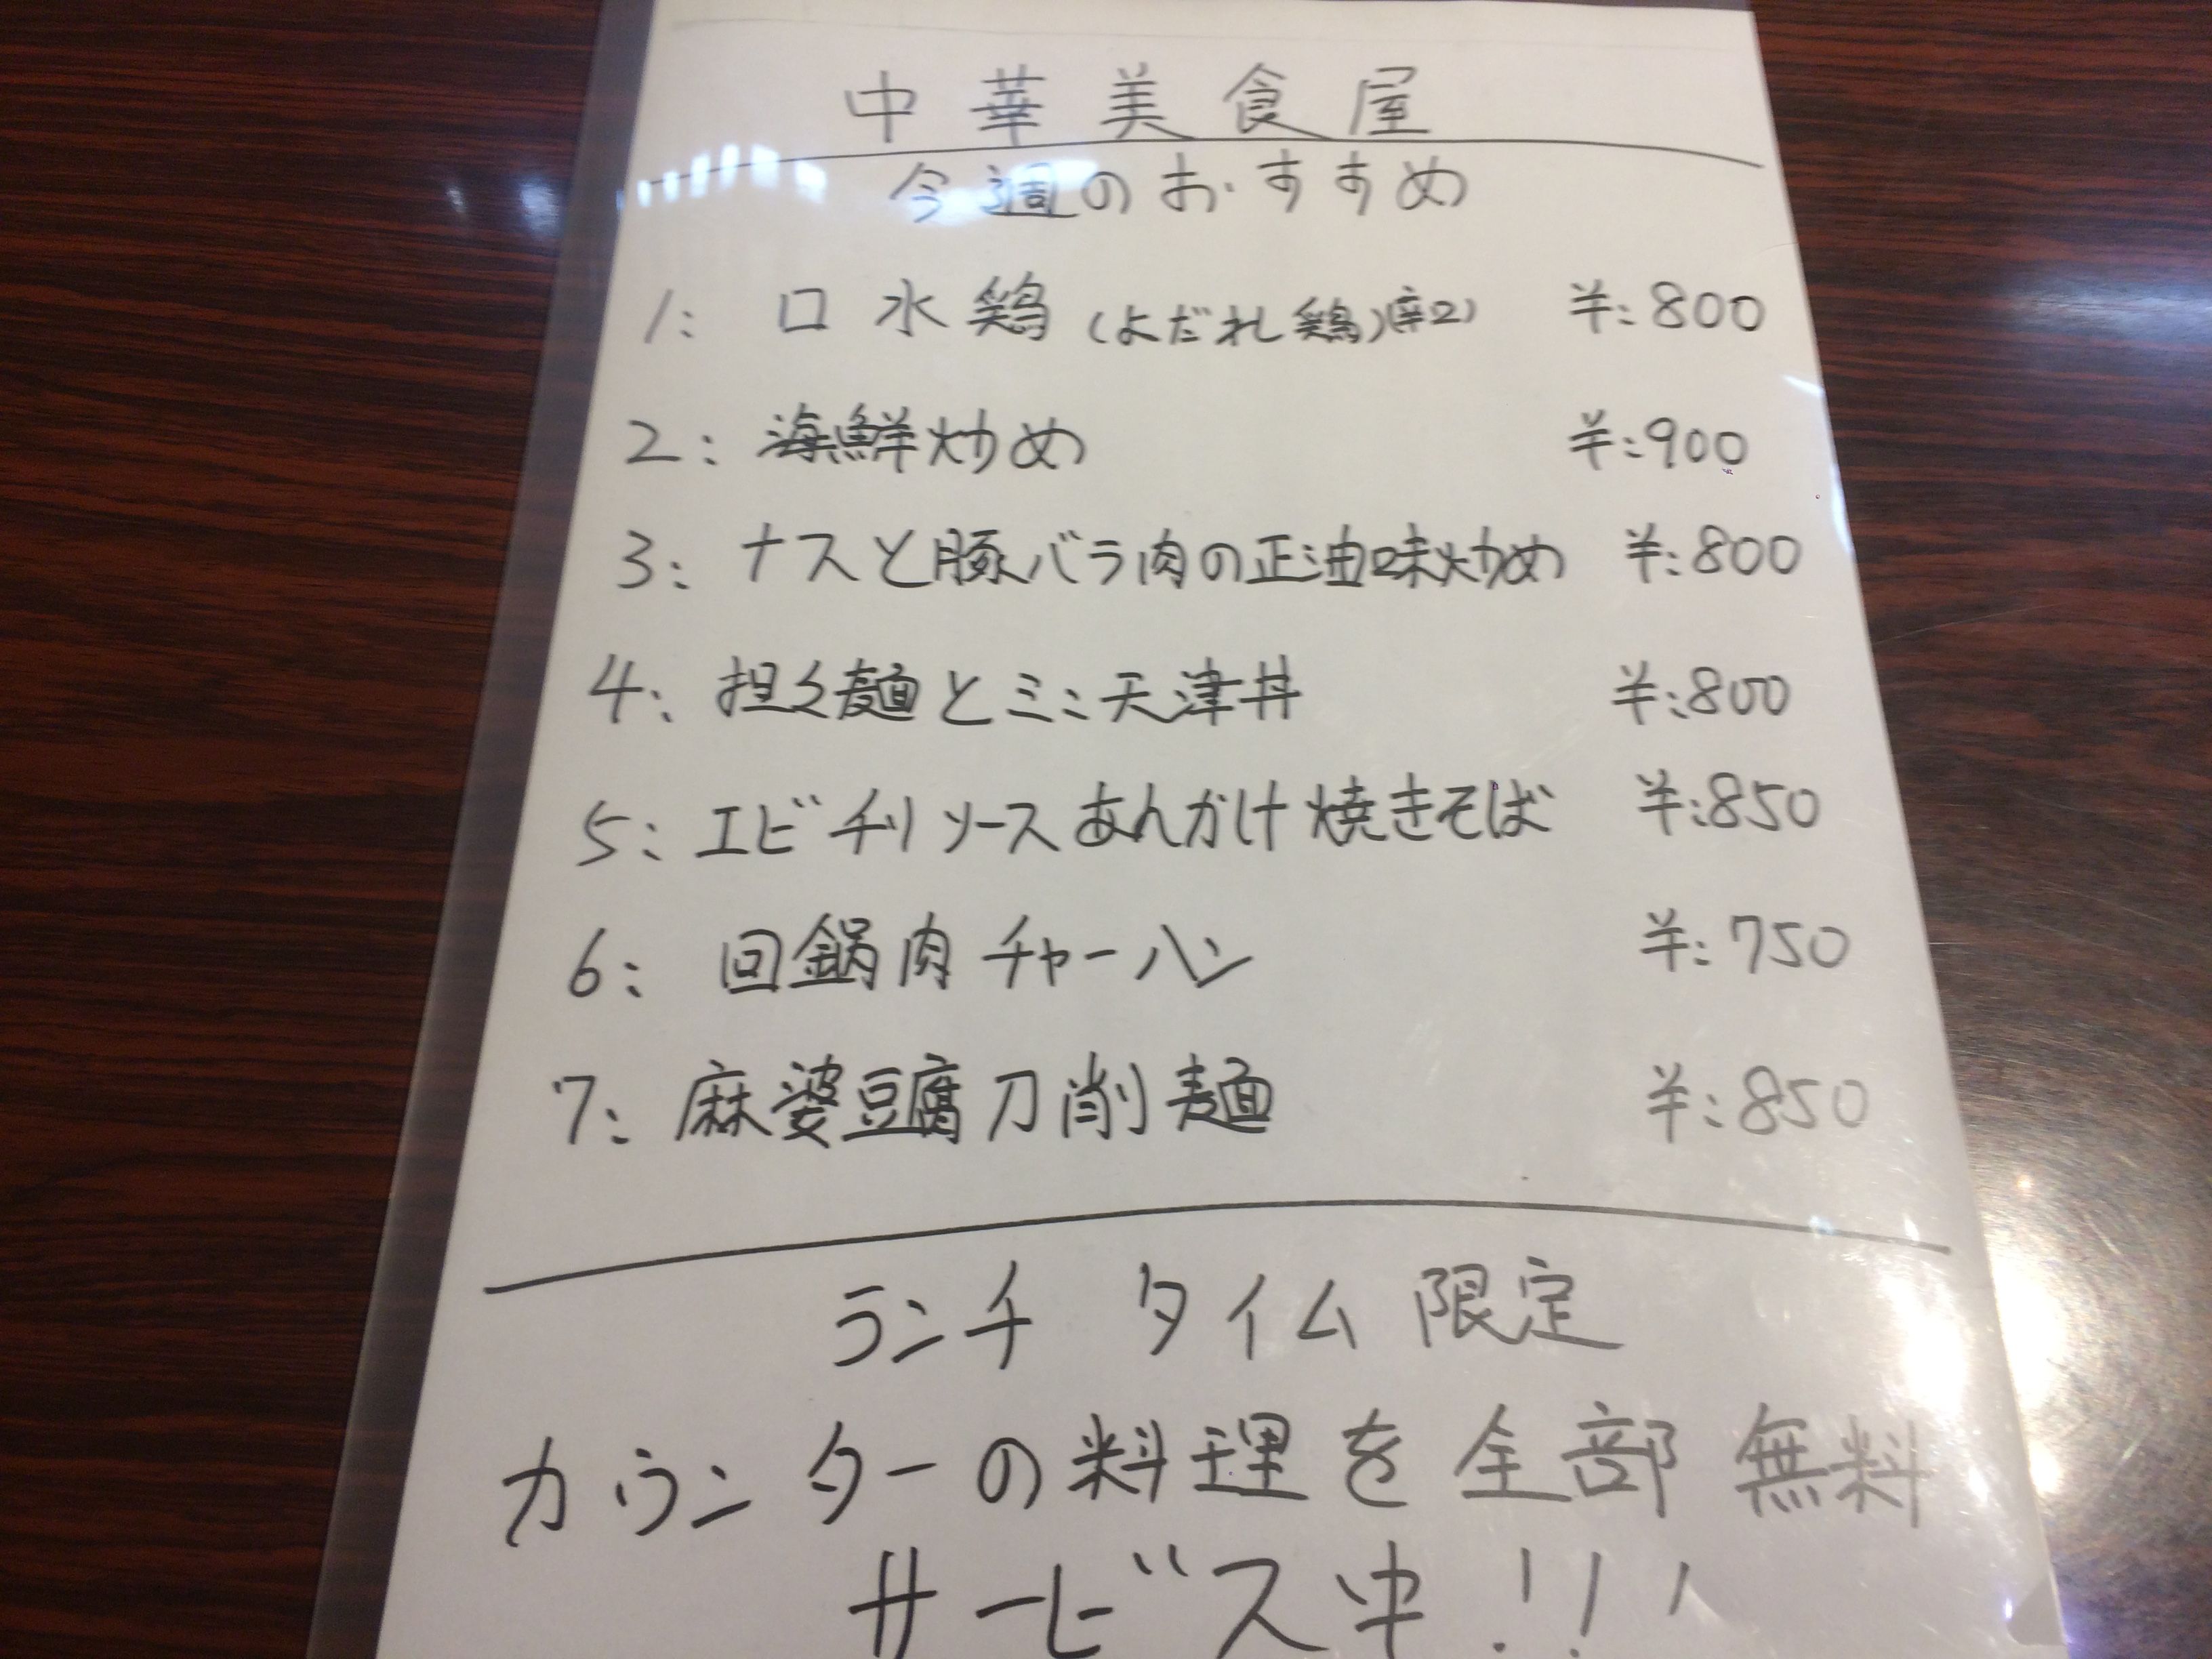 中華美食屋
今週のおすすめ
1: 口水鶏(よだれ鶏)(辛2) ¥:800
2: 海鮮炒め ¥:900
3: ナスと豚バラ肉の正油味炒め ¥:800
4: 担々麺とミニ天津丼 ¥:800
5: エビチリソースあんかけ焼きそば ¥:850
6: 回鍋肉チャーハン ¥:750
7: 麻婆豆腐刀削麺 ¥:850
ランチタイム限定
カウンターの料理を全部無料
サービス中!!!